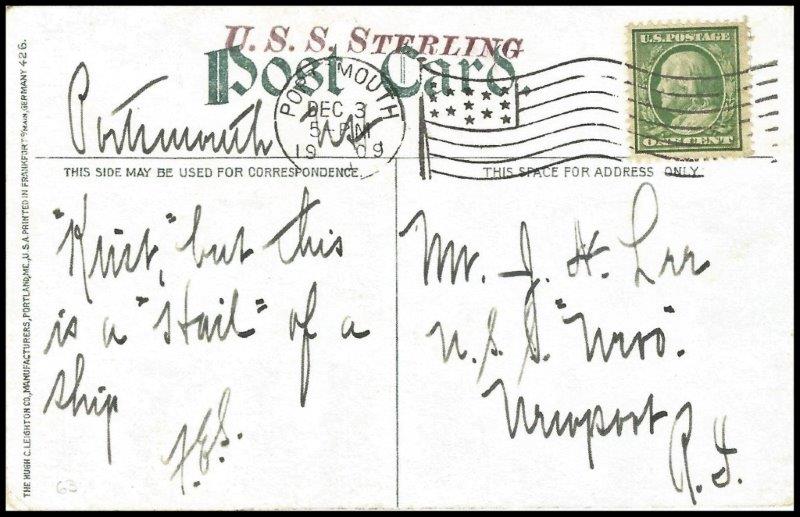 U. S. S. STERLING
Post Card.
U.S. POSTAGE
ONE CENT
PORTSMOUTH
DEC 3
5-PM
1909
Portsmouth
THIS SIDE MAY BE USED FOR CORRESPONDENCE.
THIS SPACE FOR ADDRESS ONLY.
but this
is a "Hail" of a
ship
F.E.S.
Mr. J. H. Lee
U.S.S.
Newport
R.I.
THE HUGH C. LEIGHTON CO., MANUFACTURERS, PORTLAND, ME., U.S.A. PRINTED IN FRANKFORT o/MAIN, GERMANY 426.
63